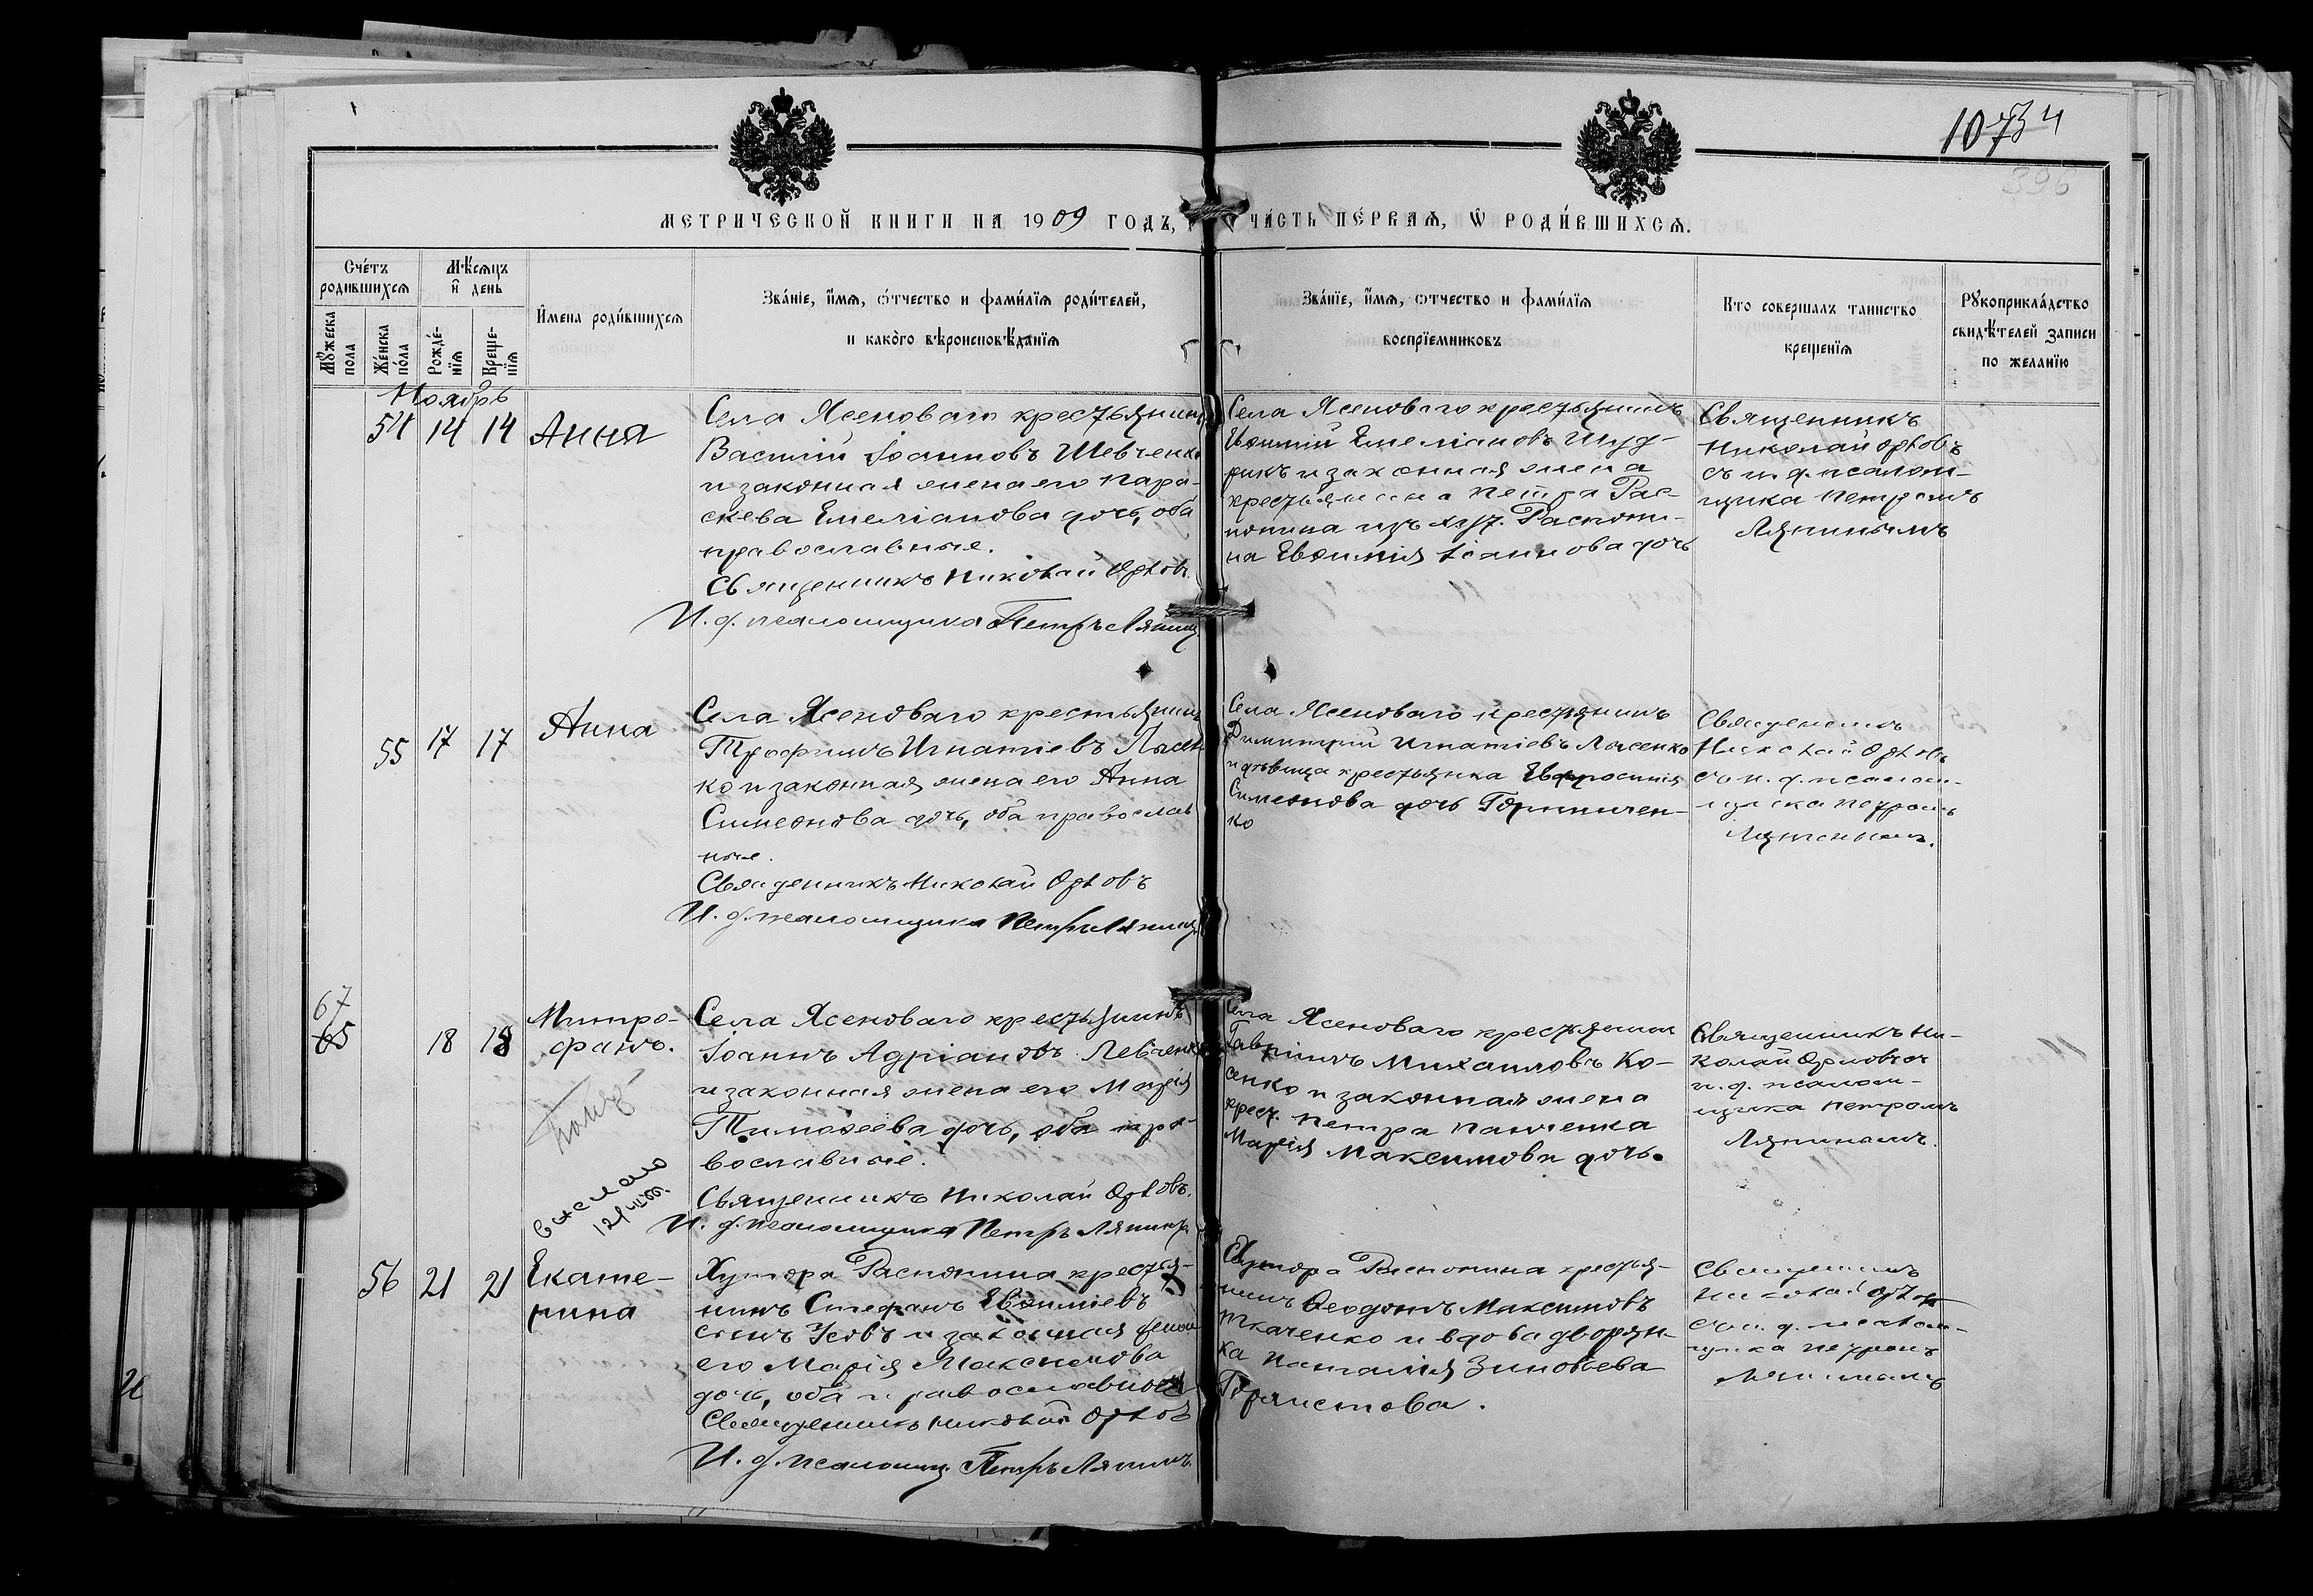 1073 4
396
МЕТРИЧЕСКОЙ КНИГИ НА 1909 ГОДЪ,
ЧА́СТЬ ПЕ́РВАѦ, Ѡ҆ РОДИ́ВШИХСѦ.
Сче́тъ родившихсѧ
Мꙋ́жеска пола
Же́нска по́ла
Мѣ́сѧцъ и҆ день
Рожде́-нїѧ
Креще-нїѧ
И҆мена роди́вшихсѧ
Зва́нїе, и҆́мѧ, ѻ҆́тчество и фами́лїѧ роди́телей,
и како́го вѣроисповѣ́данїѧ
Зва́нїе, и҆́мѧ, ѻтчество и фами́лїѧ
воспрїемниковъ
Кто совершалъ таинство
крещенїѧ
Рꙋкоприкла́дство
свидѣ́телей записи
по желанїю
Ноябрь
54 14 14 Анна
Села Ясеноваго крестьянинъ
Василій Іоанновъ Шевченко
и законная жена его Пара-
скева Емеліанова дочь, оба
православные.
Священникъ Николай Орловъ
И. д. псаломщика Петръ Ляпинъ
Села Ясеноваго крестьянинъ
Евѳимій Емеліановъ
и законная жена
крестьянина Петра Рас-
попина изъ хут. Распопи-
на Евѳимія Іоаннова дочь
Священникъ
Николай Орловъ
съ и. д. псалом-
щика Петромъ
Ляпинымъ
55 17 17 Анна
Села Ясеноваго крестьянинъ
Трофимъ Игнатіевъ Лысен
ко и законная жена его Анна
Симеонова дочь, оба православ
ные.
Священникъ Николай Орловъ
И. д. псаломщика Петръ Ляпинъ
Села Ясеноваго крестьянинъ
Димитрій Игнатіевъ Лысенко
и дѣвица крестьянка Евфросинія
Симеонова дочь Горпинчен-
ко
Священникъ
Николай Орловъ
съ и. д. псалом-
щика Петромъ
Ляпинымъ.
67
65 18 18 Митро-
фанъ.
Села Ясеноваго крестьянинъ
Іоаннъ Адріановъ Левченко
и законная жена его Марія
Тимоѳеева дочь, оба пра-
вославные.
Священникъ Николай Орловъ.
И. д. псаломщика Петръ Ляпинъ.
Села Ясеноваго крестьянин
Гавріилъ Михаиловъ Ко-
сенко и законная жена
крест. Петра Панченка
Марія Максимова дочь.
Священникъ Ни-
колай Орловъ съ
и. д. псалом-
щика Петромъ
Ляпинымъ.
56 21 21 Екате-
рина
Хутора Распопина крестья-
нинъ Стефанъ Евѳиміевъ
сынъ Усовъ и законная жена
его Марія Максимова
дочь, оба православные
Священникъ Николай Орловъ
И. д. псаломщ. Петръ Ляпинъ.
Хутора Распопина крестья-
нинъ Ѳеодотъ Максимовъ
Ткаченко и вдова дворян-
ка Наталія Зиновьева
Священникъ
Николай Орловъ
съ и. д. псалом-
щика Петромъ
Ляпинымъ